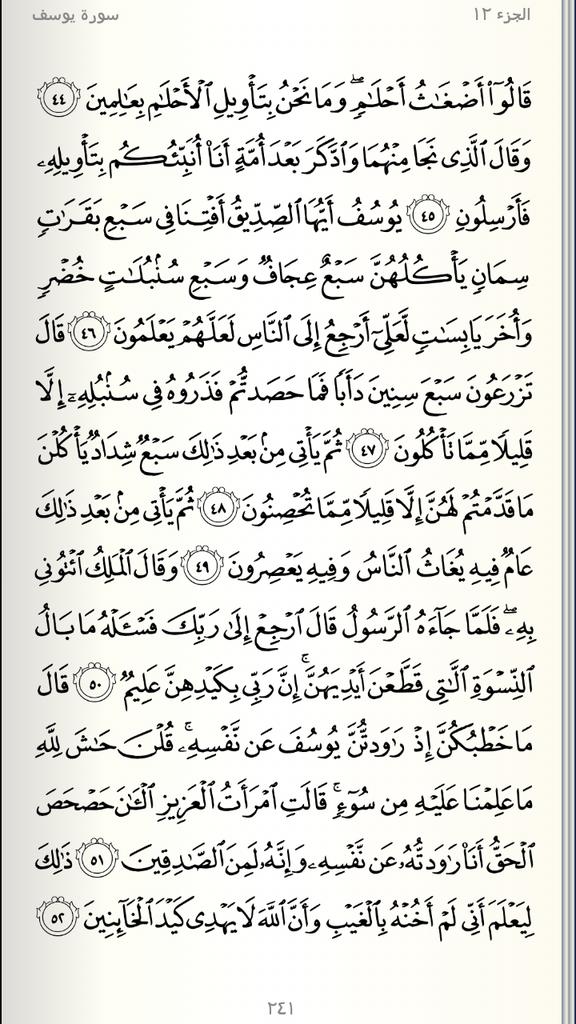 الجزء ١٢
سورة يوسف
قَالُوٓاْ أَضۡغَٰثُ أَحۡلَٰمٖۖ وَمَا نَحۡنُ بِتَأۡوِيلِ ٱلۡأَحۡلَٰمِ بِعَٰلِمِينَ ٤٤
وَقَالَ ٱلَّذِي نَجَا مِنۡهُمَا وَٱدَّكَرَ بَعۡدَ أُمَّةٍ أَنَا۠ أُنَبِّئُكُم بِتَأۡوِيلِهِۦ
فَأَرۡسِلُونِ ٤٥ يُوسُفُ أَيُّهَا ٱلصِّدِّيقُ أَفۡتِنَا فِي سَبۡعِ بَقَرَٰتٖ
سِمَانٖ يَأۡكُلُهُنَّ سَبۡعٌ عِجَافٞ وَسَبۡعِ سُنۢبُلَٰتٍ خُضۡرٖ
وَأُخَرَ يَابِسَٰتٖ لَّعَلِّيٓ أَرۡجِعُ إِلَى ٱلنَّاسِ لَعَلَّهُمۡ يَعۡلَمُونَ ٤٦ قَالَ
تَزۡرَعُونَ سَبۡعَ سِنِينَ دَأَبٗا فَمَا حَصَدتُّمۡ فَذَرُوهُ فِي سُنۢبُلِهِۦٓ إِلَّا
قَلِيلٗا مِّمَّا تَأۡكُلُونَ ٤٧ ثُمَّ يَأۡتِي مِنۢ بَعۡدِ ذَٰلِكَ سَبۡعٞ شِدَادٞ يَأۡكُلۡنَ
مَا قَدَّمۡتُمۡ لَهُنَّ إِلَّا قَلِيلٗا مِّمَّا تُحۡصِنُونَ ٤٨ ثُمَّ يَأۡتِي مِنۢ بَعۡدِ ذَٰلِكَ
عَامٞ فِيهِ يُغَاثُ ٱلنَّاسُ وَفِيهِ يَعۡصِرُونَ ٤٩ وَقَالَ ٱلۡمَلِكُ ٱئۡتُونِي
بِهِۦۖ فَلَمَّا جَآءَهُ ٱلرَّسُولُ قَالَ ٱرۡجِعۡ إِلَىٰ رَبِّكَ فَسۡـَٔلۡهُ مَا بَالُ
ٱلنِّسۡوَةِ ٱلَّٰتِي قَطَّعۡنَ أَيۡدِيَهُنَّۚ إِنَّ رَبِّي بِكَيۡدِهِنَّ عَلِيمٞ ٥٠ قَالَ
مَا خَطۡبُكُنَّ إِذۡ رَٰوَدتُّنَّ يُوسُفَ عَن نَّفۡسِهِۦۚ قُلۡنَ حَٰشَ لِلَّهِ
مَا عَلِمۡنَا عَلَيۡهِ مِن سُوٓءٖۚ قَالَتِ ٱمۡرَأَتُ ٱلۡعَزِيزِ ٱلۡـَٰٔنَ حَصۡحَصَ
ٱلۡحَقُّ أَنَا۠ رَٰوَدتُّهُۥ عَن نَّفۡسِهِۦ وَإِنَّهُۥ لَمِنَ ٱلصَّٰدِقِينَ ٥١ ذَٰلِكَ
لِيَعۡلَمَ أَنِّي لَمۡ أَخُنۡهُ بِٱلۡغَيۡبِ وَأَنَّ ٱللَّهَ لَا يَهۡدِي كَيۡدَ ٱلۡخَآئِنِينَ ٥٢
٢٤١